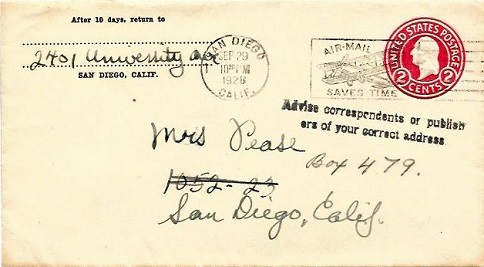 After 10 days, return to
2401 University Ave
SAN DIEGO, CALIF.
SAN DIEGO
SEP 29
10 PM
1928
CALIF.
AIR-MAIL
SAVES TIME
UNITED STATES POSTAGE
2 CENTS 2
Advise correspondents or publish
ers of your correct address
Mrs Pease
Box 479.
1052-23
San Diego, Calif.